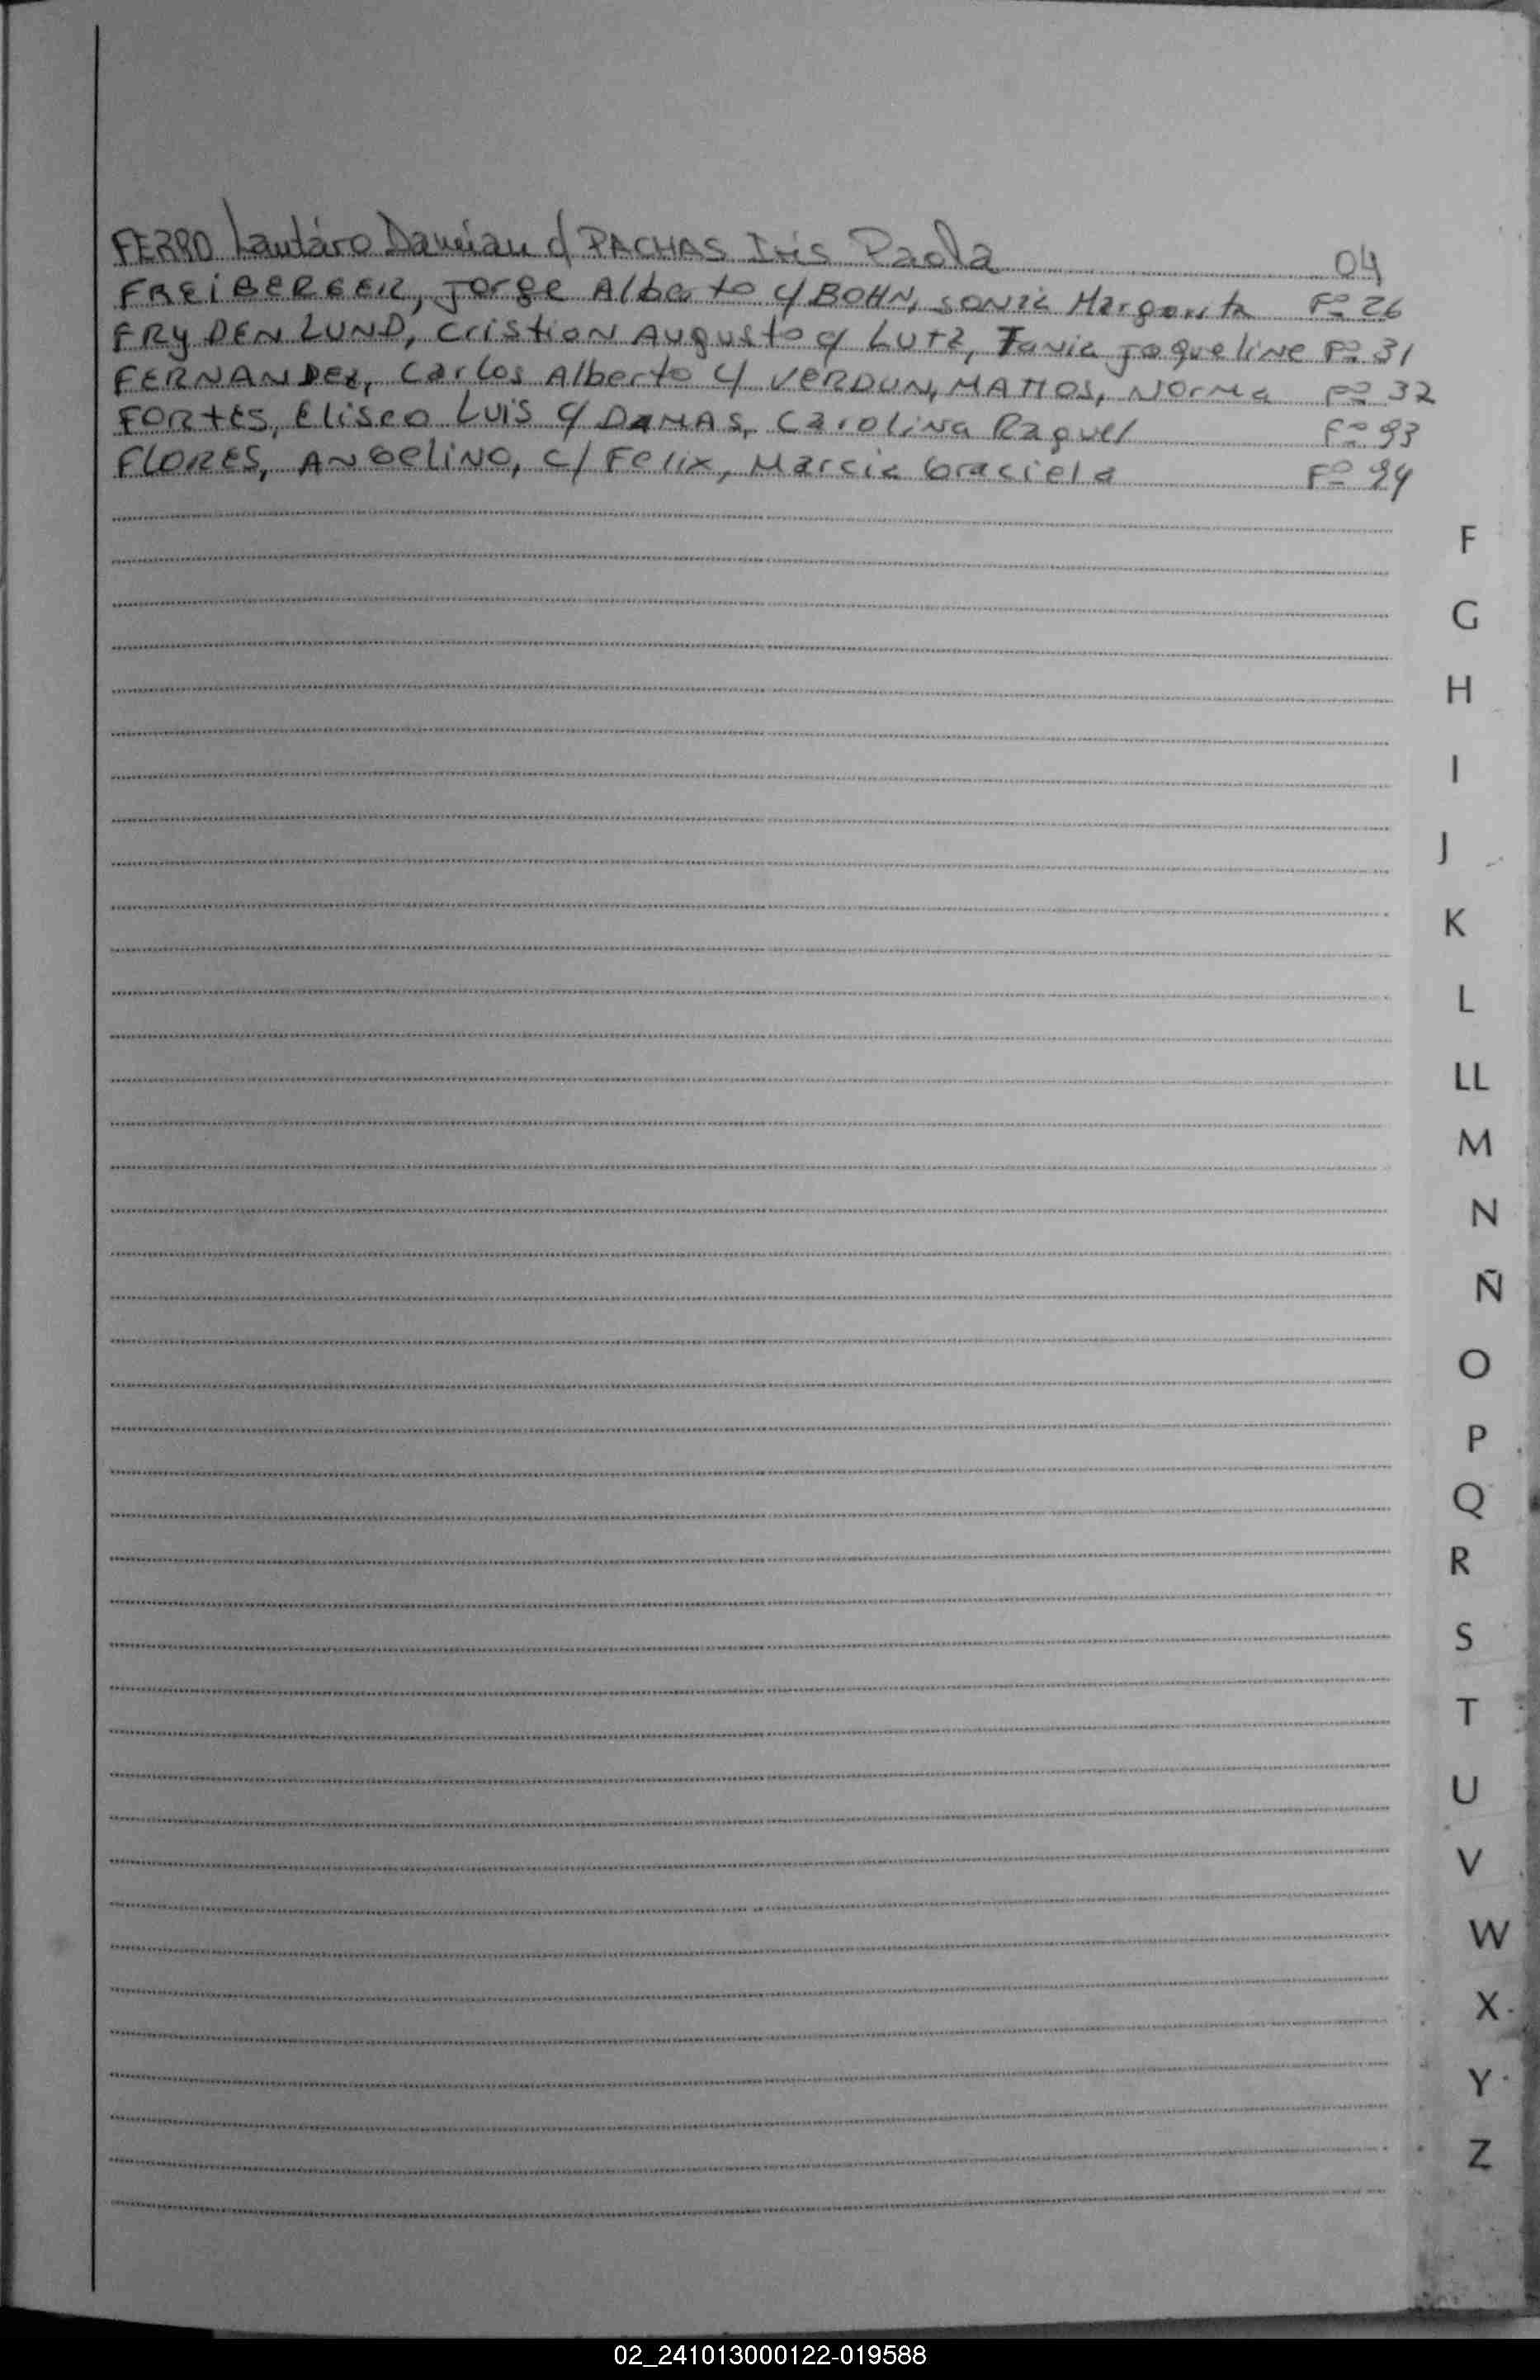 FERRO Lautáro Damián c/ PACHAS Iris Paola 04
FREIBERGER, Jorge Alberto c/ BOHN, SONIA Margarita Fº 26
FRYDENLUND, Cristian Augusto c/ Lutz, Tania Jaqueline Fº 31
FERNANDEZ, Carlos Alberto c/ VERDUN, MATTOS, Norma Fº 32
FORTES, Eliseo Luis c/ DAMAS, Carolina Raquel Fº 93
FLORES, ANGELINO, c/ Felix, Marcia Graciela Fº 94
F
G
H
I
J
K
L
LL
M
N
Ñ
O
P
Q
R
S
T
U
V
W
X
Y
Z
02_241013000122-019588